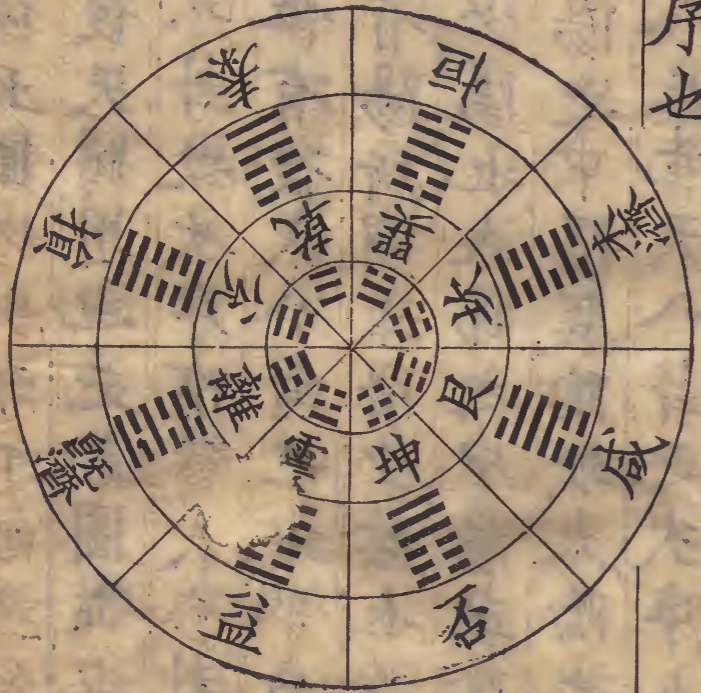 序也
泰
恒
未濟
咸
否
益
既濟
損
乾
巽
坎
艮
坤
離
兌